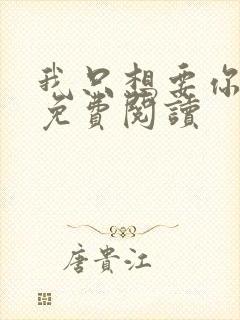 我只想要你
免費閱讀
唐貴江